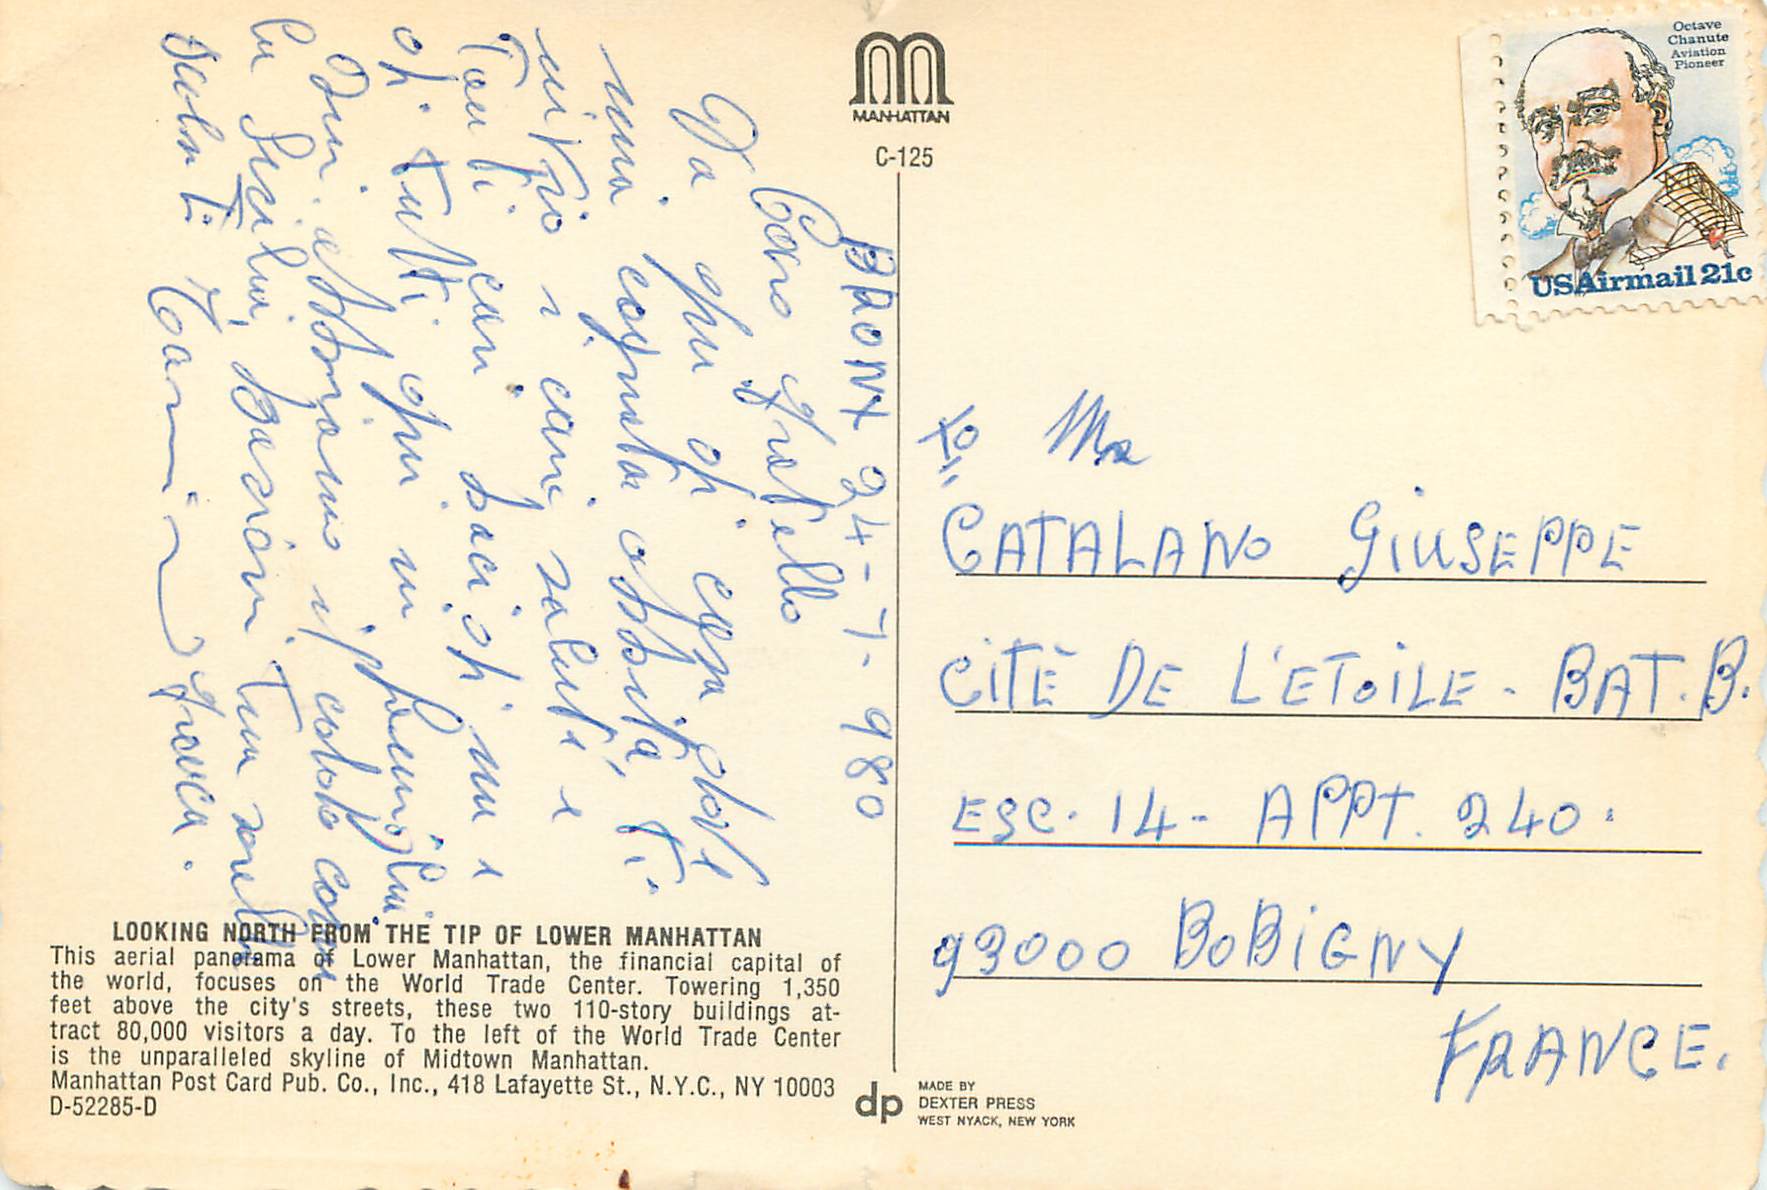 MANHATTAN
C-125
Octave
Chanute
Aviation
Pioneer
USAirmail 21c
BRONX 24-7-980
Caro fratello
Da qui di casa dove
mia cognata abbita, ti
invio i cari saluti e
Tanti cari baci di me e
di tutti qui in famiglia
Oggi abbiamo il caldo come
la Sicilia, bacioni Tua sorella
Saluti
Mr
CATALANO GIUSEPPE
CITÉ DE L'ETOILE - BAT. B.
ESC. 14 - APPT. 240.
93000 BOBIGNY
FRANCE.
LOOKING NORTH FROM THE TIP OF LOWER MANHATTAN
This aerial panorama of Lower Manhattan, the financial capital of
the world, focuses on the World Trade Center. Towering 1,350
feet above the city's streets, these two 110-story buildings at-
tract 80,000 visitors a day. To the left of the World Trade Center
is the unparalleled skyline of Midtown Manhattan.
Manhattan Post Card Pub. Co., Inc., 418 Lafayette St., N.Y.C., NY 10003
D-52285-D
dp
MADE BY
DEXTER PRESS
WEST NYACK, NEW YORK